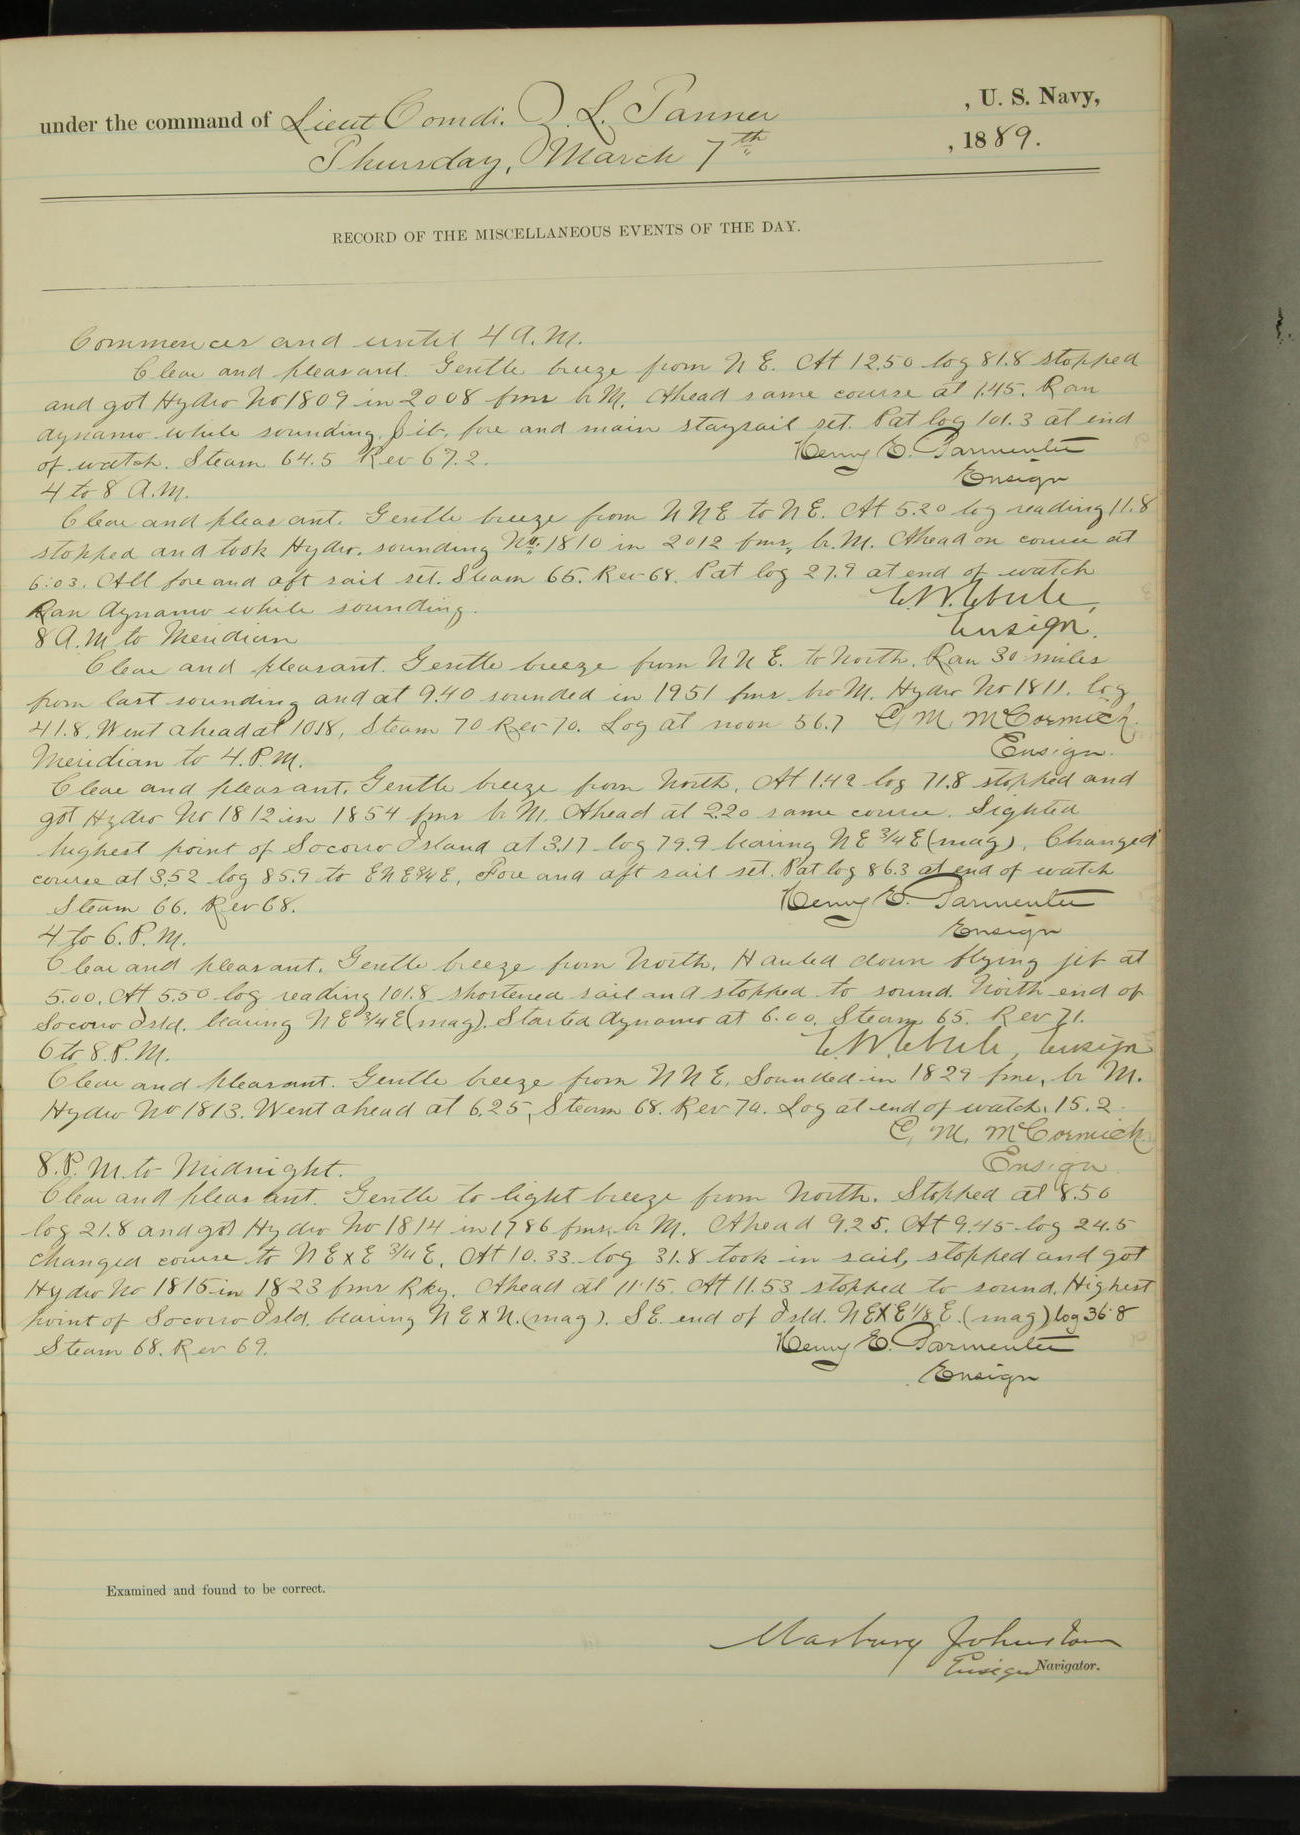 under the command of Lieut Comdr. Z. L. Tanner , U. S. Navy,
Thursday, March 7th , 1889.
RECORD OF THE MISCELLANEOUS EVENTS OF THE DAY.
Commences and until 4 A.M.
Clear and pleasant. Gentle breeze from N E. At 12.50 log 81.8 stopped
and got Hydro No 1809 in 2008 fms br M. Ahead same course at 1.45. Ran
dynamo while sounding. Jib, fore and main staysail set. Pat log 101.3 at end
of watch. Steam 64.5 Rev 67.2. Henry E. Parmenter
Ensign
4 to 8 A.M.
Clear and pleasant. Gentle breeze from NNE to NE. At 5.20 log reading 11.8
stopped and took Hydro. sounding No. 1810 in 2012 fms, br. M. Ahead on course at
6:03. All fore and aft sail set. Steam 65. Rev 68. Pat log 27.9 at end of watch
Ran dynamo while sounding. E. W. Eberle,
Ensign.
8 A.M to Meridian
Clear and pleasant. Gentle breeze from N N E. to North. Ran 30 miles
from last sounding and at 9.40 sounded in 1951 fms bro M. Hydro No 1811. log
41.8. Went ahead at 10.18, Steam 70 Rev 70. Log at noon 56.7 C. M. McCormick.
Ensign.
Meridian to 4. P.M.
Clear and pleasant. Gentle breeze from North. At 1.42 log 71.8 stopped and
got Hydro No 1812 in 1854 fms br M. Ahead at 2.20 same course. Sighted
highest point of Socorro Island at 3.17 log 79.9 bearing NE 3/4 E (mag). Changed
course at 3.52 log 85.9 to ENE 3/4 E. Fore and aft sail set. Pat log 86.3 at end of watch
Steam 66. Rev 68. Henry E. Parmenter
Ensign
4 to 6. P.M.
Clear and pleasant. Gentle breeze from North. Hauled down flying jib at
5.00. At 5.50 log reading 101.8 shortened sail and stopped to sound. North end of
Socorro Isld. bearing NE 3/4 E (mag). Started dynamo at 6.00. Steam 65. Rev 71.
E. W. Eberle, Ensign
6 to 8. P.M.
Clear and pleasant. Gentle breeze from NNE. Sounded in 1829 fms, br M.
Hydro No 1813. Went ahead at 6.25, Steam 68. Rev 70. Log at end of watch. 15.2
C. M. McCormick
Ensign.
8. P. M. to Midnight.
Clear and pleasant. Gentle to light breeze from North. Stopped at 8.50
log 21.8 and got Hydro No 1814 in 1786 fms. br M. Ahead 9.25. At 9.45 log 24.5
changed course to NExE 3/4 E. At 10.33 log 31.8 took in sail, stopped and got
Hydro No 1815 in 1823 fms Rky. Ahead at 11.15. At 11.53 stopped to sound. Highest
point of Socorro Isld. bearing N E x N. (mag). SE. end of Isld. NExE 1/8 E. (mag) log 36.8
Steam 68. Rev 69. Henry E. Parmenter
Ensign
Examined and found to be correct.
Marbury Johnston
Ensign Navigator.